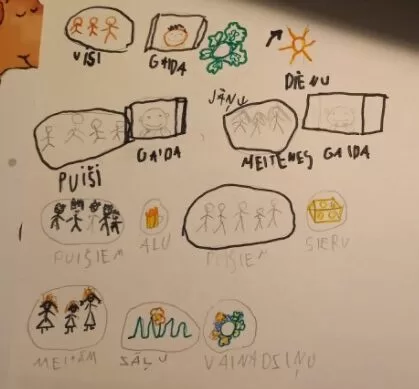 VISI GAIDA
DIENU
JĀŅU
PUIŠI GAIDA MEITENES GAIDA
PUIŠIEM ALU SIERU
MEITĀM ZĀĻU VAINADZIŅU